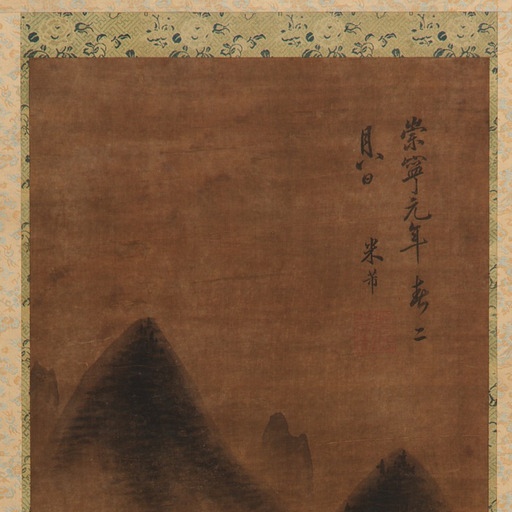 崇寧元年春二
月八日
米芾